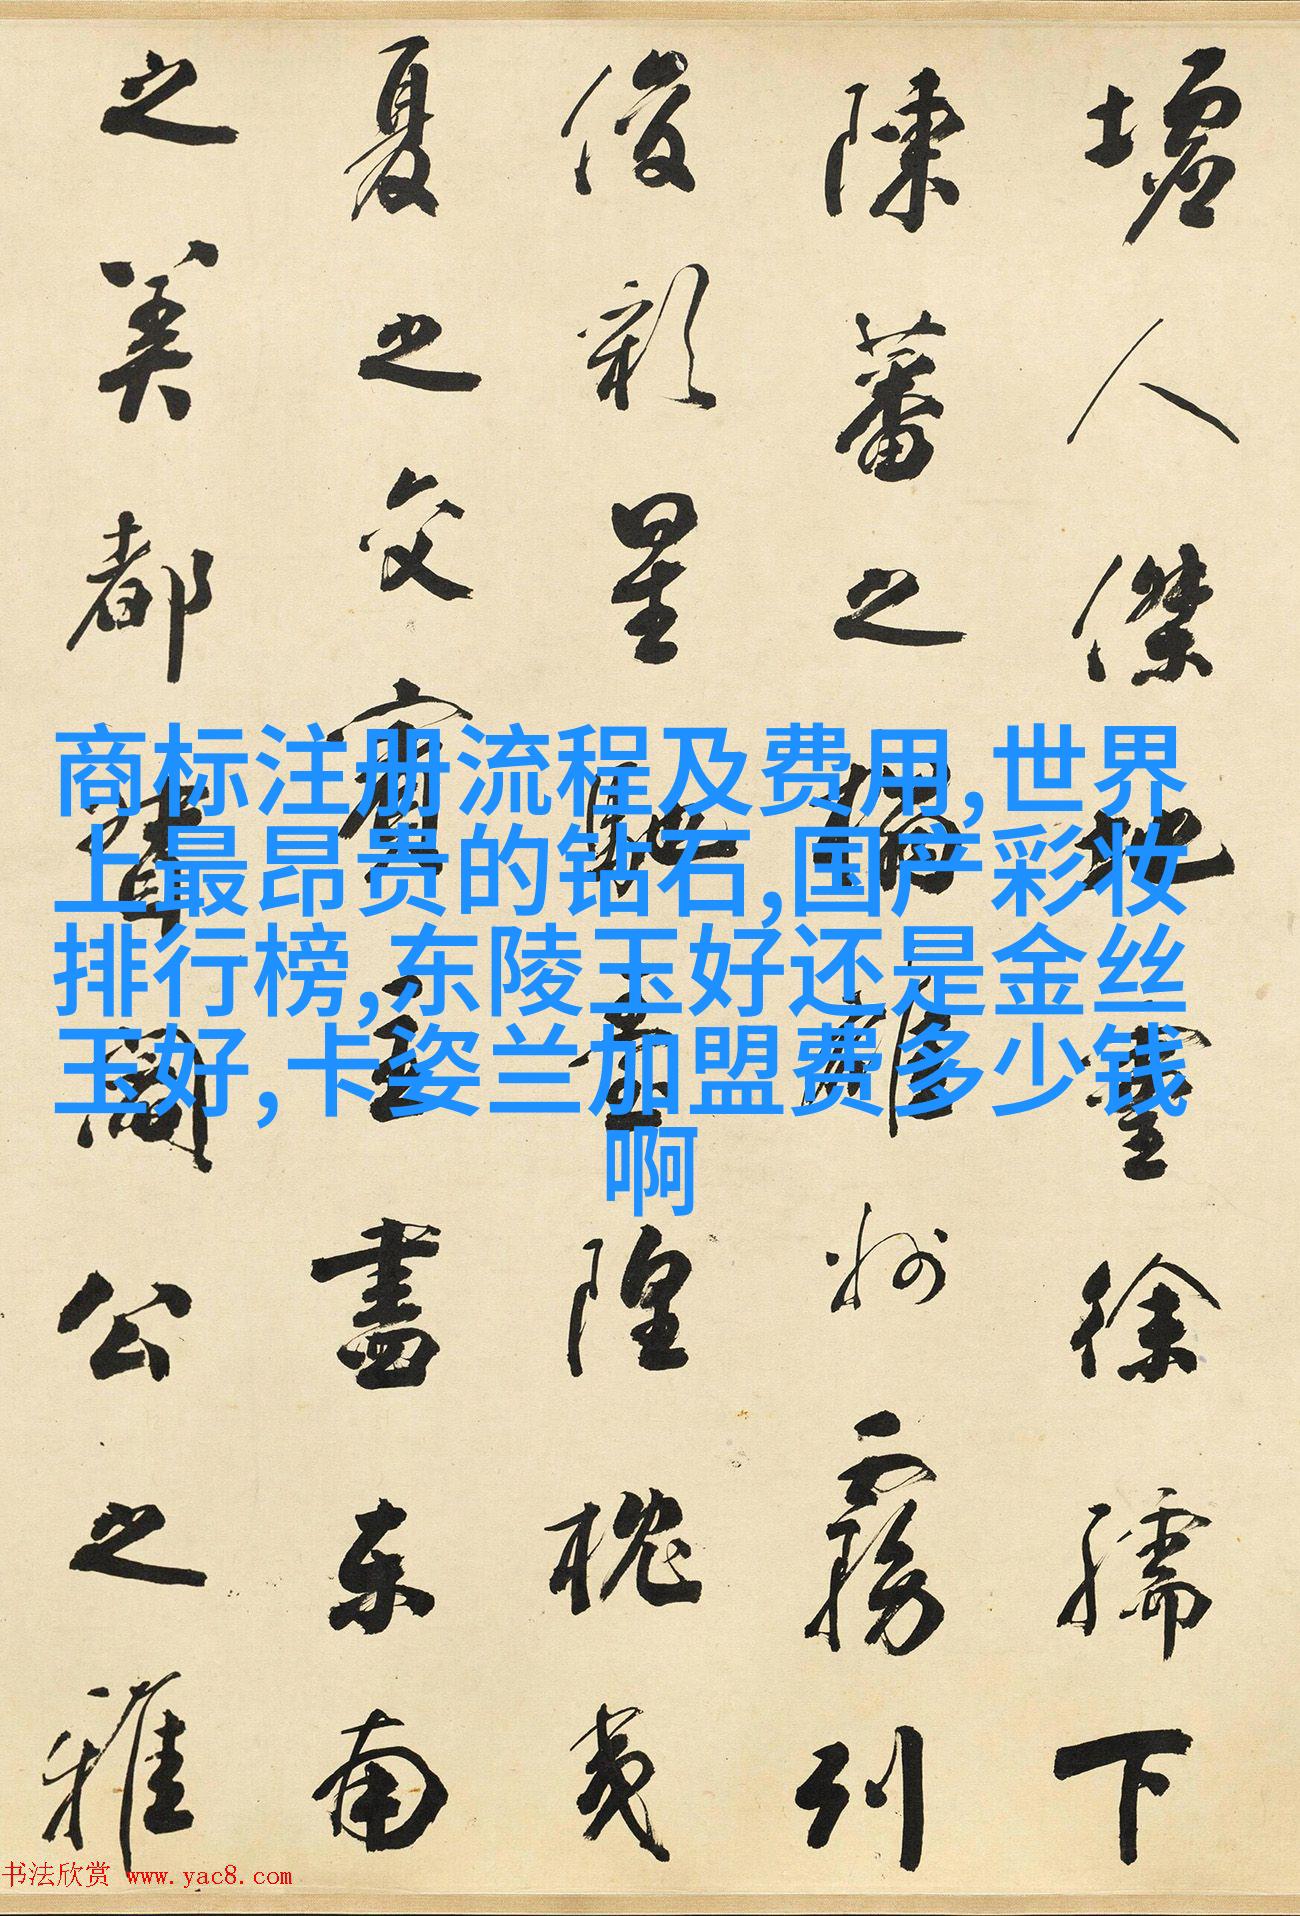 墟人傑地靈徐孺下
陳蕃之榻雄州霧列
俊彩星馳臺隍枕夷
夏之交賓主盡東南
之美都督閻公之雅
商标注册流程及费用,世界
上最昂贵的钻石,国产彩妆
排行榜,东陵玉好还是金丝
玉好,卡姿兰加盟费多少钱
啊
书法欣赏 www.yac8.com